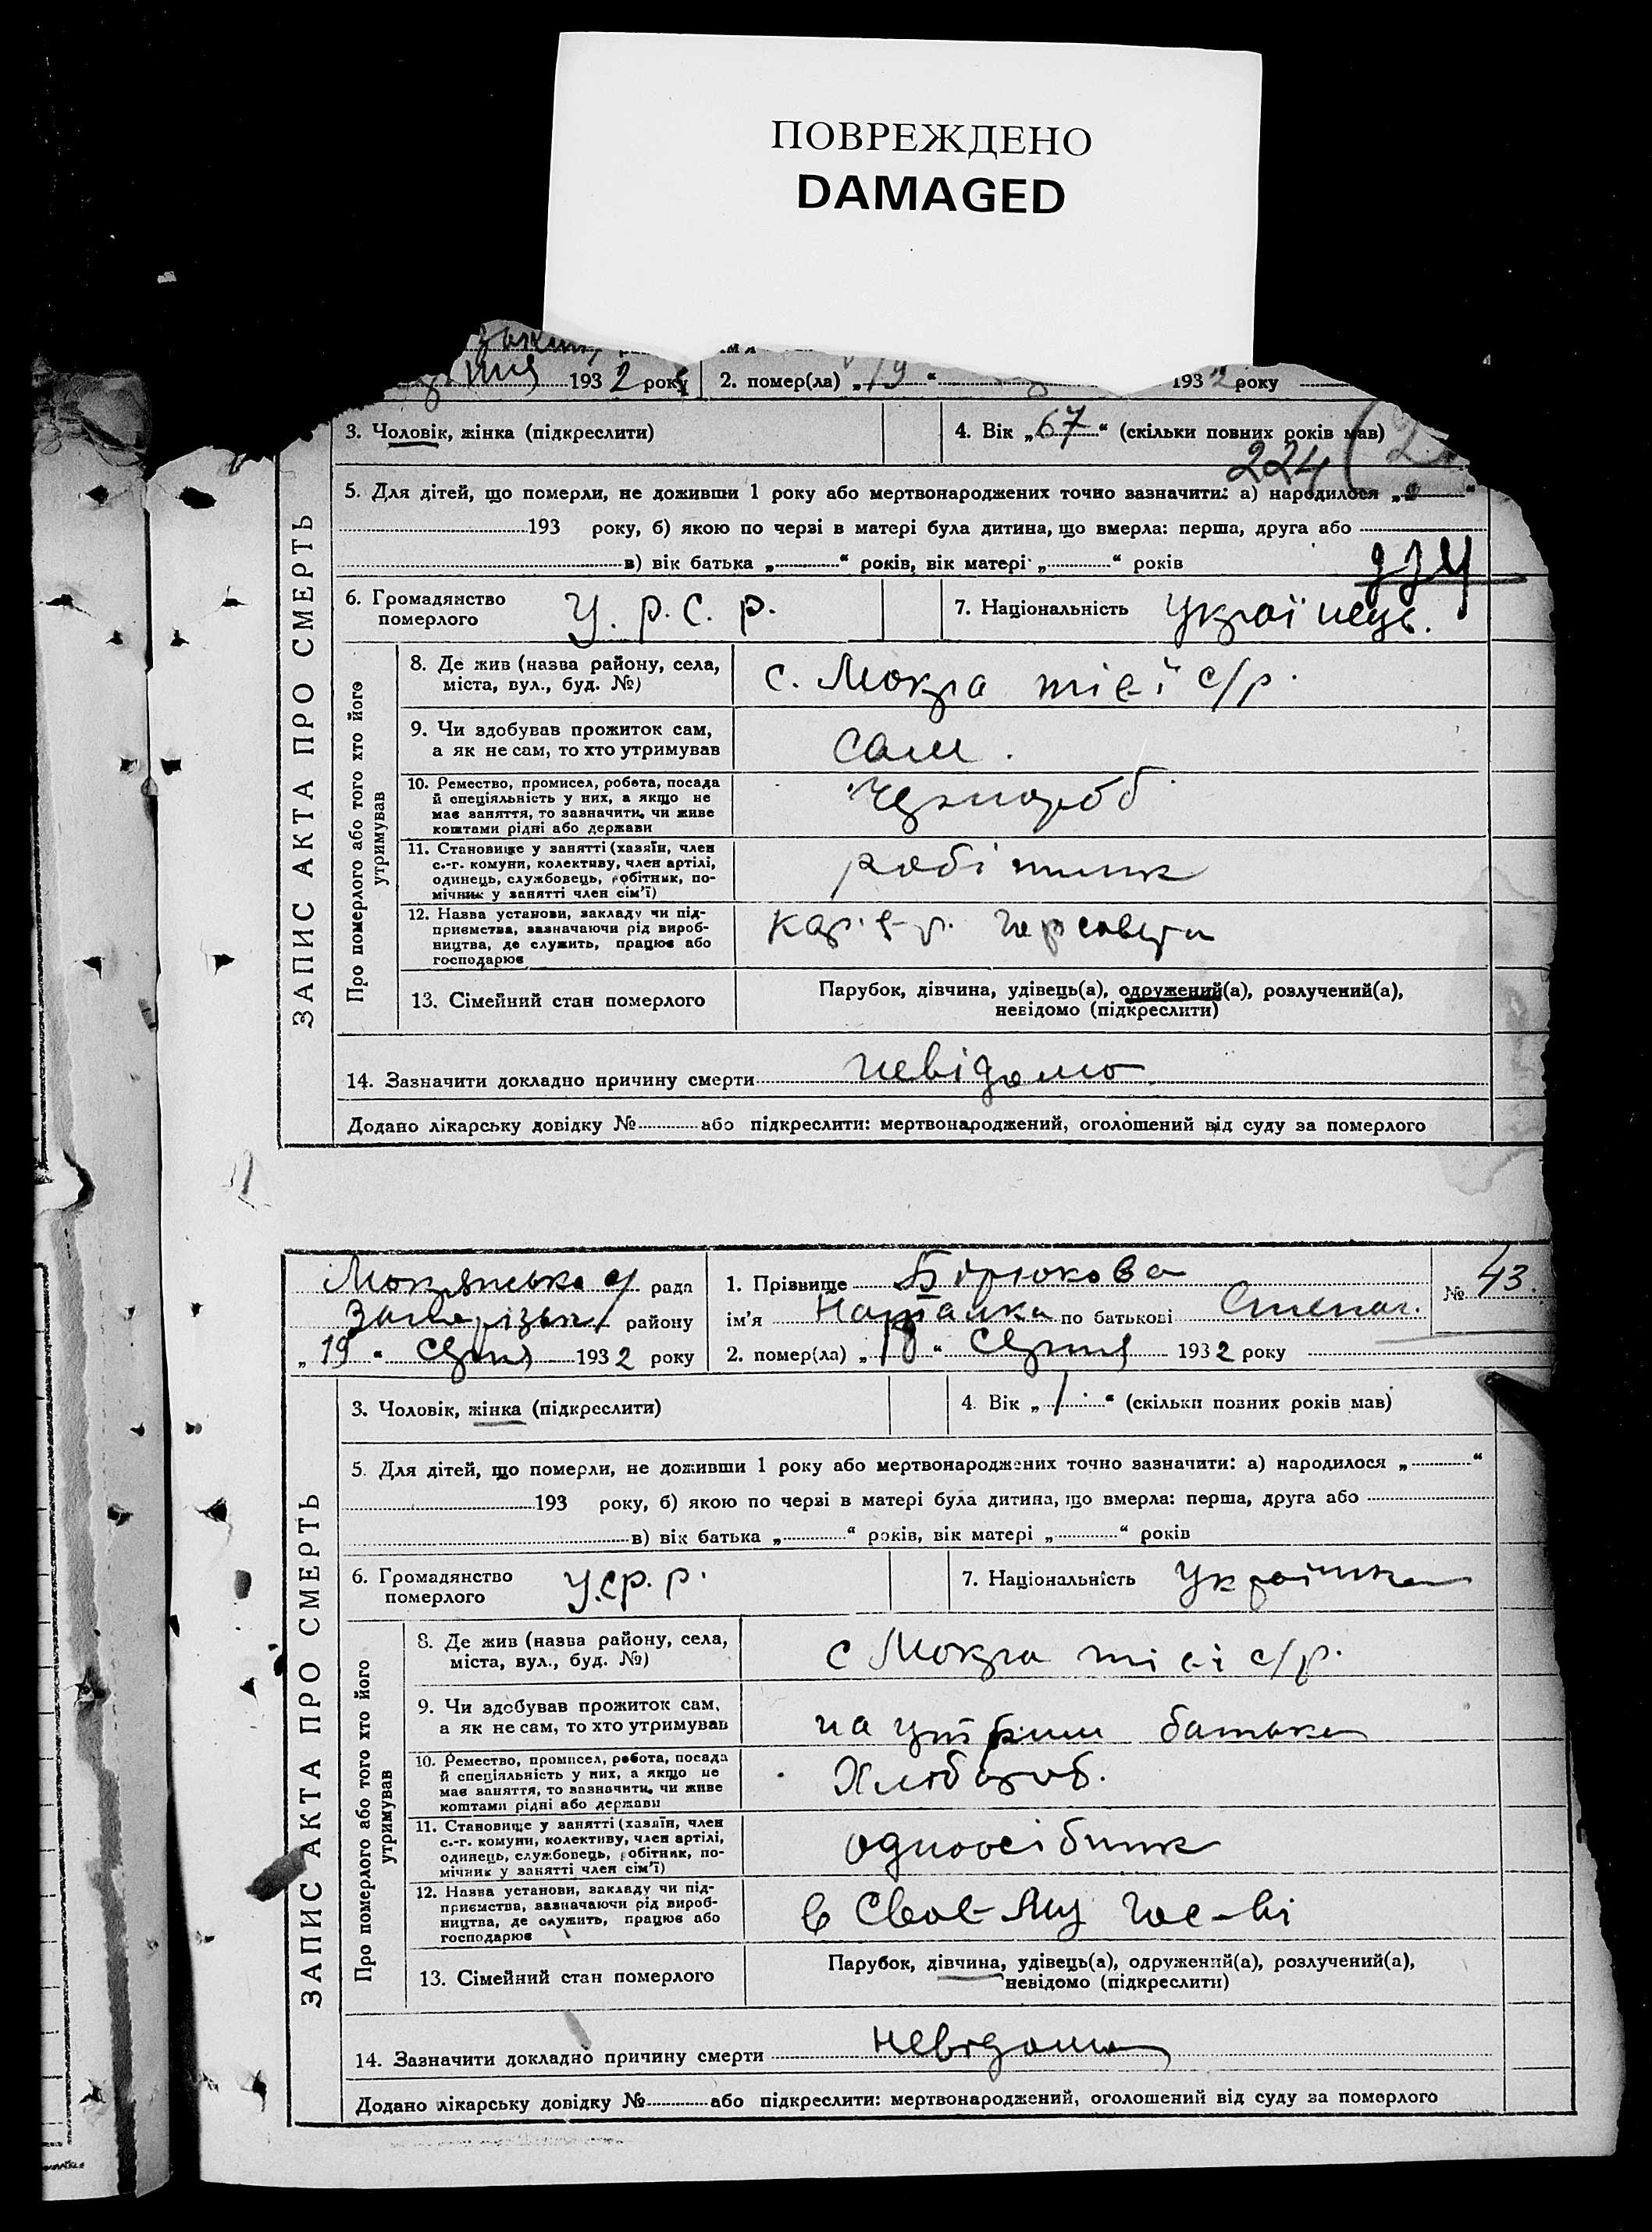 ПОВРЕЖДЕНО
DAMAGED
1932 року 2. помер(ла) „19“ 1932 року
3. Чоловік, жінка (підкреслити) 4. Вік „67“ (скільки повних років мав)
224
5. Для дітей, що померли, не доживши 1 року або мертвонароджених точно зазначити: а) народилося „ “
193 року, б) якою по черзі в матері була дитина, що вмерла: перша, друга або
в) вік батька „ “ років, вік матері „ “ років
6. Громадянство померлого У. Р. С. Р. 7. Національність Українець.
ЗАПИС АКТА ПРО СМЕРТЬ
Про померлого або того хто його утримував
8. Де жив (назва району, села,
міста, вул., буд. №)
с. Мокра тієї с/р.
9. Чи здобував прожиток сам,
а як не сам, то хто утримував
сам.
10. Ремество, промисел, робота, посада
й спеціяльність у них, а якщо не
має заняття, то зазначити, чи живе
коштами рідні або держави
Чорнороб
11. Становище у занятті (хазяїн, член
с.-г. комуни, колективу, член артілі,
одинець, службовець, робітник, по-
мічник у занятті член сім'ї)
робітник
12. Назва установи, закладу чи під-
приємства, зазначаючи рід вироб-
ництва, де служить, працює або
господарює
13. Сімейний стан померлого
Парубок, дівчина, удівець(а), одружений(а), розлучений(а),
невідомо (підкреслити)
14. Зазначити докладно причину смерти невідомо
Додано лікарську довідку № або підкреслити: мертвонароджений, оголошений від суду за померлого
Мокрянська рада 1. Прізвище Бірюкова № 43.
району ім'я Наталка по батькові Степан.
„19“ Серпня 1932 року 2. помер(ла) „18“ Серпня 1932 року
3. Чоловік, жінка (підкреслити) 4. Вік „1“ (скільки повних років мав)
5. Для дітей, що померли, не доживши 1 року або мертвонароджених точно зазначити: а) народилося „ “
193 року, б) якою по черзі в матері була дитина, що вмерла: перша, друга або
в) вік батька „ “ років, вік матері „ “ років
6. Громадянство померлого У.С.Р.Р. 7. Національність Українка
ЗАПИС АКТА ПРО СМЕРТЬ
Про померлого або того хто його утримував
8. Де жив (назва району, села,
міста, вул., буд. №)
с Мокра тієі с/р.
9. Чи здобував прожиток сам,
а як не сам, то хто утримував
на утрим батька
10. Ремество, промисел, робота, посада
й спеціяльність у них, а якщо не
має заняття, то зазначити, чи живе
коштами рідні або держави
Хлібороб.
11. Становище у занятті (хазяїн, член
с.-г. комуни, колективу, член артілі,
одинець, службовець, робітник, по-
мічник у занятті член сім'ї)
одноосібник
12. Назва установи, закладу чи під-
приємства, зазначаючи рід вироб-
ництва, де служить, працює або
господарює
в своє-му гос-ві
13. Сімейний стан померлого
Парубок, дівчина, удівець(а), одружений(а), розлучений(а),
невідомо (підкреслити)
14. Зазначити докладно причину смерти невідомо
Додано лікарську довідку № або підкреслити: мертвонароджений, оголошений від суду за померлого